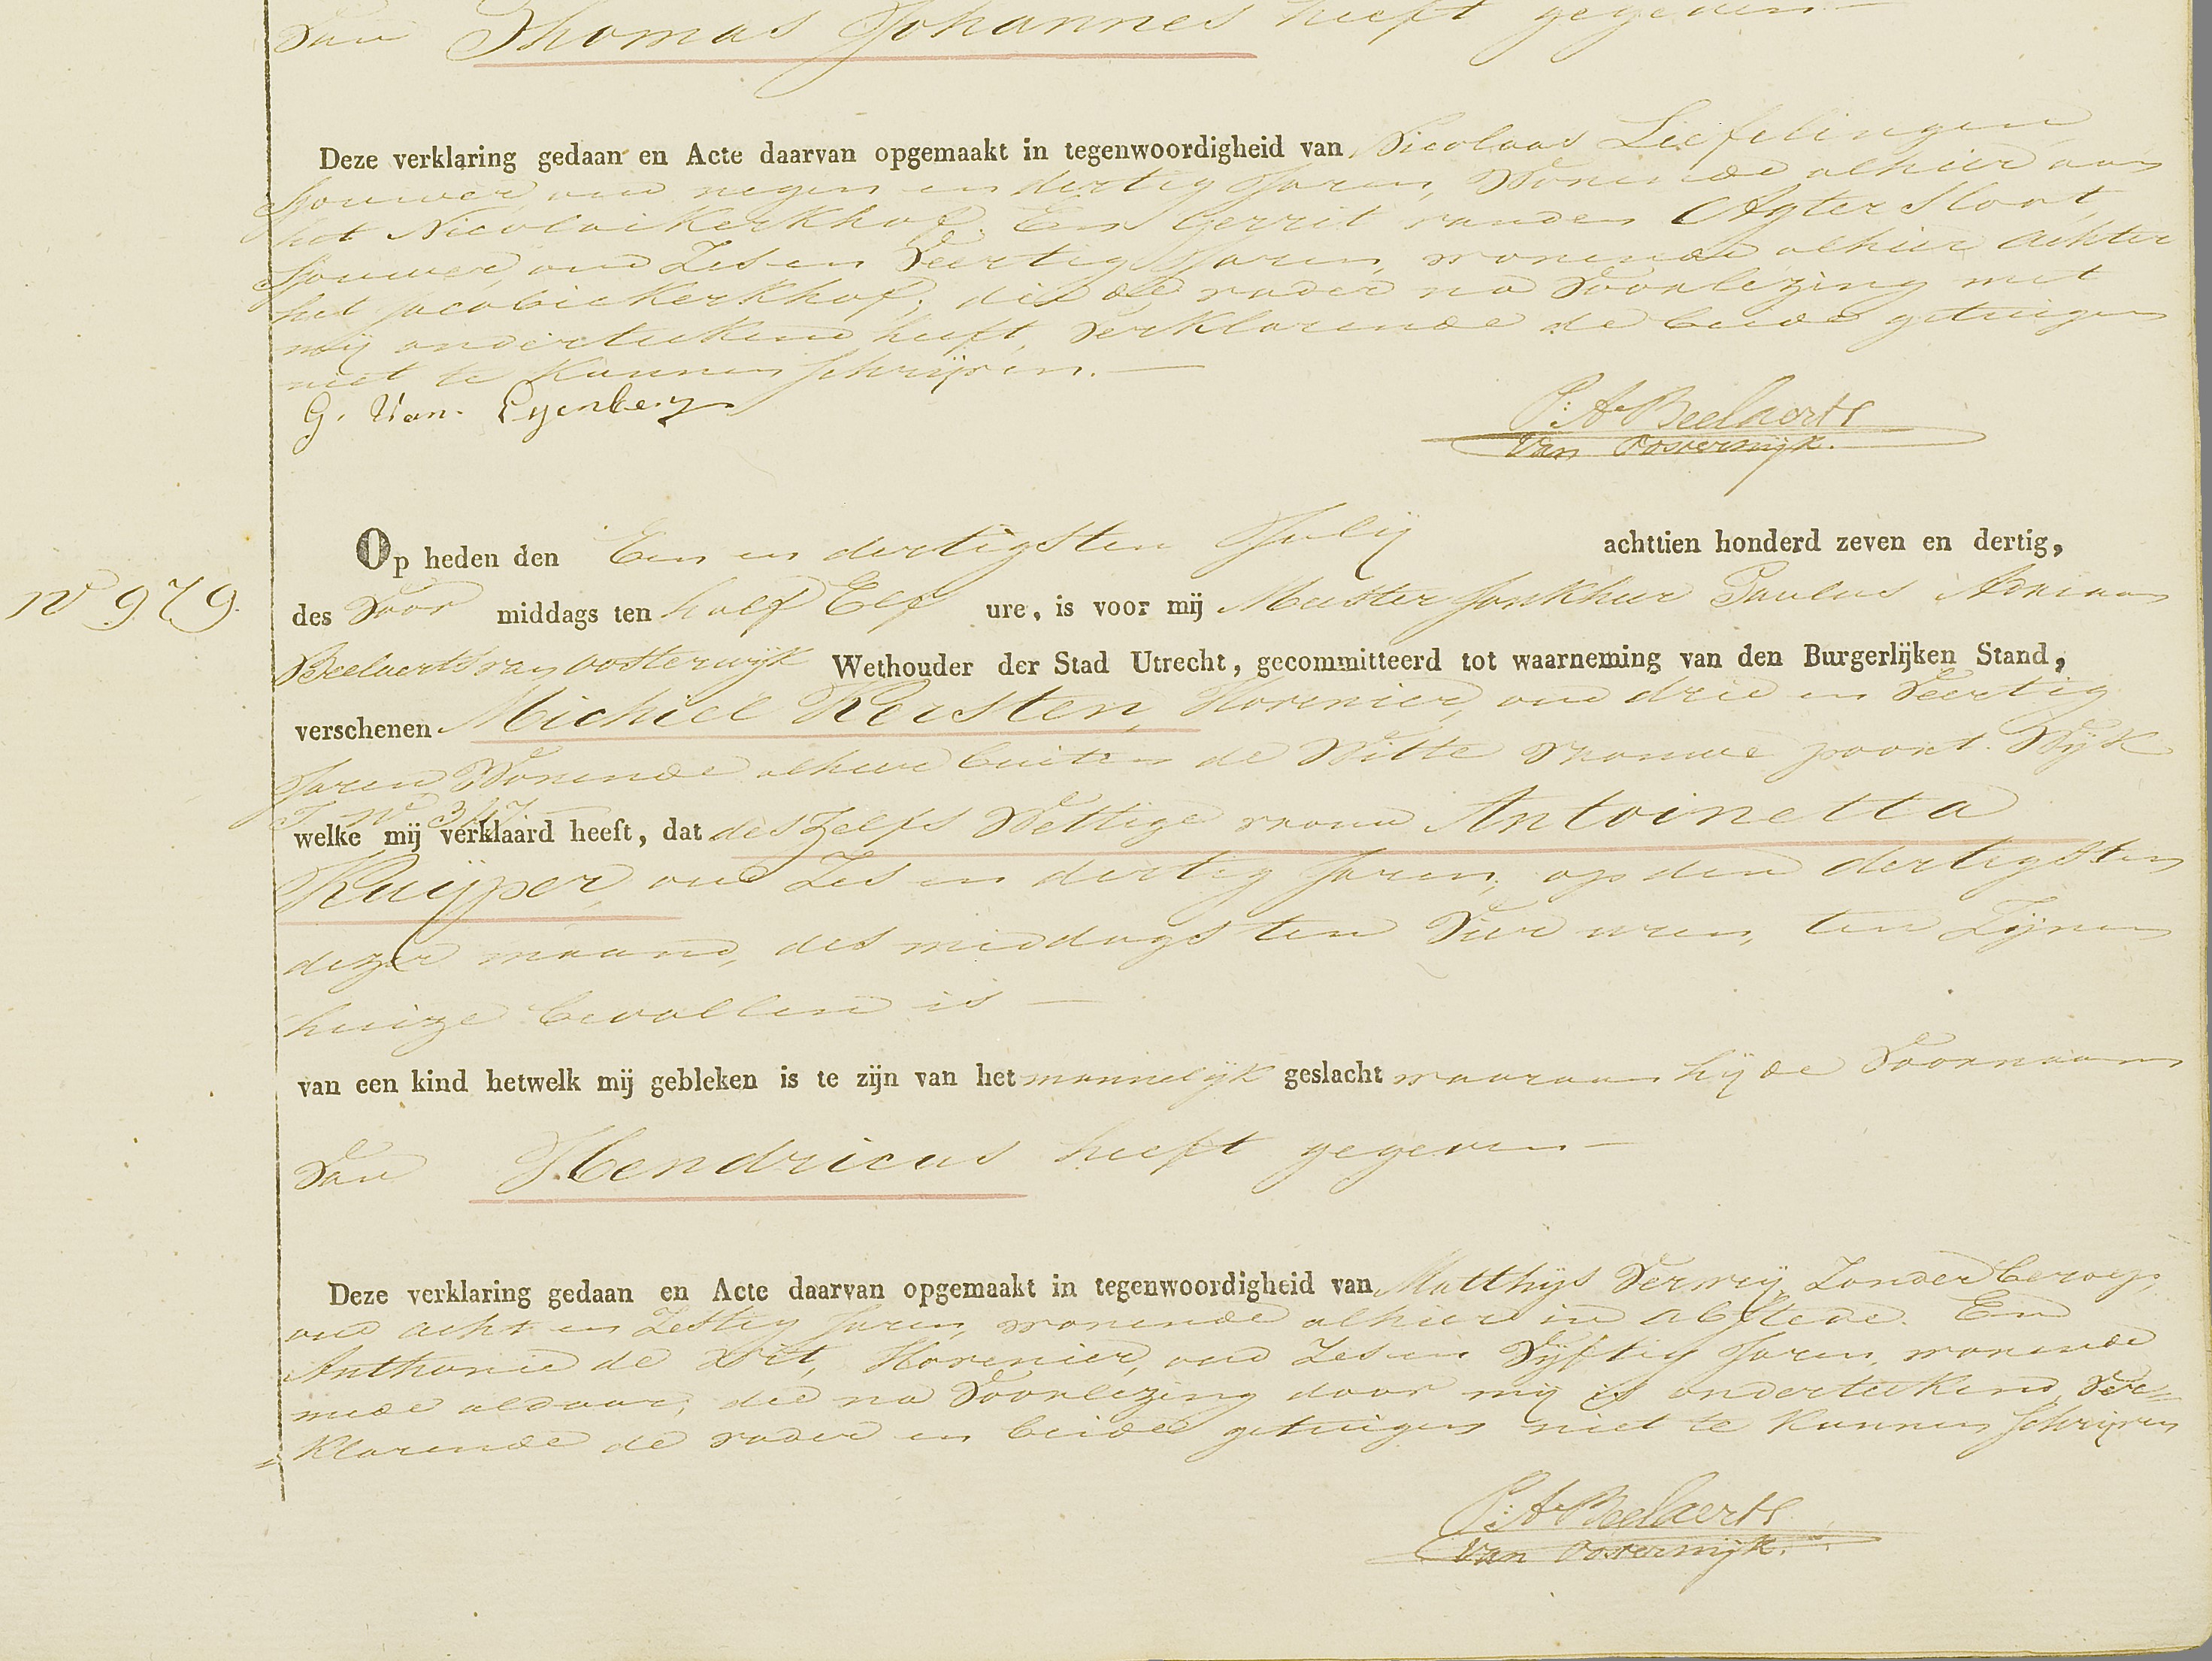 van Thomas Johannes heeft gegeven
Deze verklaring gedaan en Acte daarvan opgemaakt in tegenwoordigheid van Nicolaas Liefelingen
Sjouwer, oud negen en dertig Jaren, Wonende alhier aan
het Nicolai Kerkhof. En Gerrit vanden Agtersloot,
Sjouwer, oud Zes en Veertig Jaren, wonende alhier achter
het jacobie Kerkhof, die de vader na Voorlezing met
mij onderteekend heeft, Verklarende de beide getuigen
niet te Kunnen schrijven.
G. Van Eyenberg
P: A. Beelaerts
Van Oosterwijk.
Op heden den Een en dertigsten Julij achttien honderd zeven en dertig,
No 979.
des Voor middags ten half Elf ure, is voor mij Meester Jonkheer Paulus Adriaan
Beelaerts van Oosterwijk Wethouder der Stad Utrecht, gecommitteerd tot waarneming van den Burgerlijken Stand,
verschenen Michiel Kersten, Hovenier, oud drie en Veertig
Jaren Wonende alhier buiten de Witte Vrouwe poort Wijk
I No 347
welke mij verklaard heeft, dat deszelfs Wettige vrouw Antoinetta
Kuijper, oud Zes en dertig Jaren, op den dertigsten
dezer maand, des middags ten Vier uren, ten Zijnen
huize bevallen is
van een kind hetwelk mij gebleken is te zijn van het mannelijk geslacht waaraan hij de Voornaam
van Hendricus heeft gegeven
Deze verklaring gedaan en Acte daarvan opgemaakt in tegenwoordigheid van Matthijs Verweij, Zonder beroep,
oud acht en Zestig Jaren, wonende alhier in Abstede. En
Anthonie de Wit, Hovenier, oud Zes en Vijftig Jaren, wonende
mede aldaar, die na Voorlezing door mij is onderteekend, Ver=
=klarende de vader en beide getuigen niet te Kunnen schrijven
P: A. Beelaerts
Van Oosterwijk.